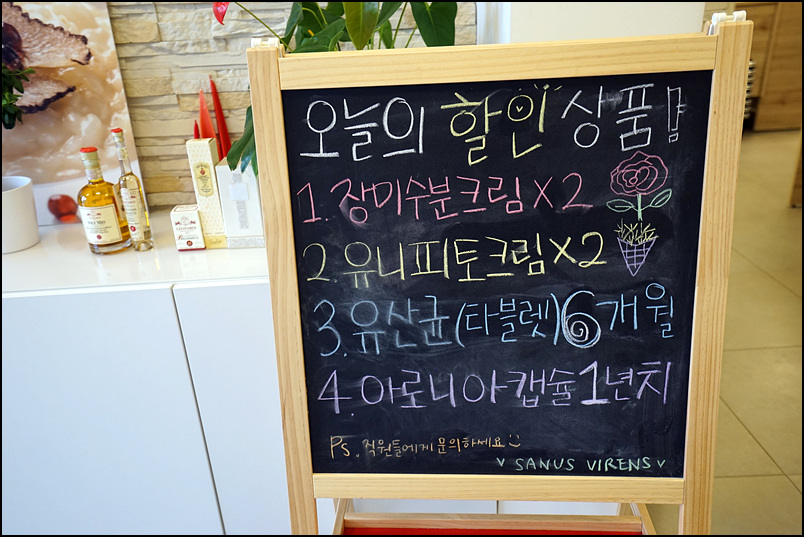 오늘의 할인상품
1. 장미수분크림 X 2
2. 유니피토크림 X 2
3. 유산균(타블렛) 6개월
4. 아로니아캡슐 1년치
Ps. 직원들에게 문의하세요
SANUS VIRENS